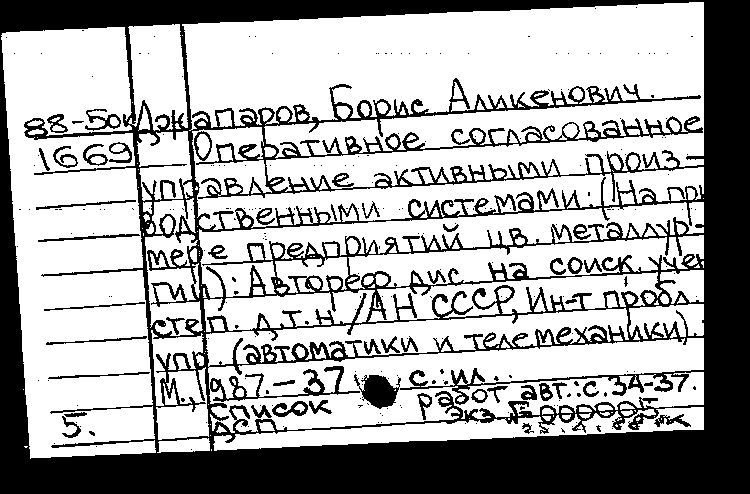 88-5ок Джапаров, Борис Аликенович.
1669 Оперативное согласованное
управление активными произ-
водственными системами: (На при
мере предприятий цв. металлур-
гии): Автореф. дис. на соиск. учен
степ. д.т.н. / АН СССР, Ин-т пробл.
упр. (автоматики и телемеханики).
М., 1987. - 37 с.: ил..
Список работ авт.: с. 34-37.
5. ДСП. Экз №